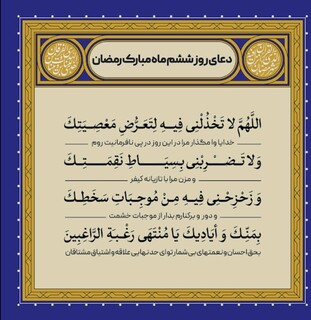 دعای روز ششم ماه مبارک رمضان
اللَّهُمَّ لا تَخْذُلْنِی فِیهِ لِتَعَرُّضِ مَعْصِیَتِکَ
خدایا وا مگذار مرا در این روز در پی نافرمانیت روم
وَلا تَضْرِبْنِی بِسِیَاطِ نَقِمَتِکَ
و مزن مرا با تازیانه کیفر
وَ زَحْزِحْنِی فِیهِ مِنْ مُوجِبَاتِ سَخَطِکَ
و دور و برکنارم بدار از موجبات خشمت
بِمَنِّکَ وَ أَیَادِیکَ یَا مُنْتَهَى رَغْبَةِ الرَّاغِبِینَ
بحق احسان و نعمتهای بی‌شمار تو ای حد نهایی علاقه و اشتیاق مشتاقان